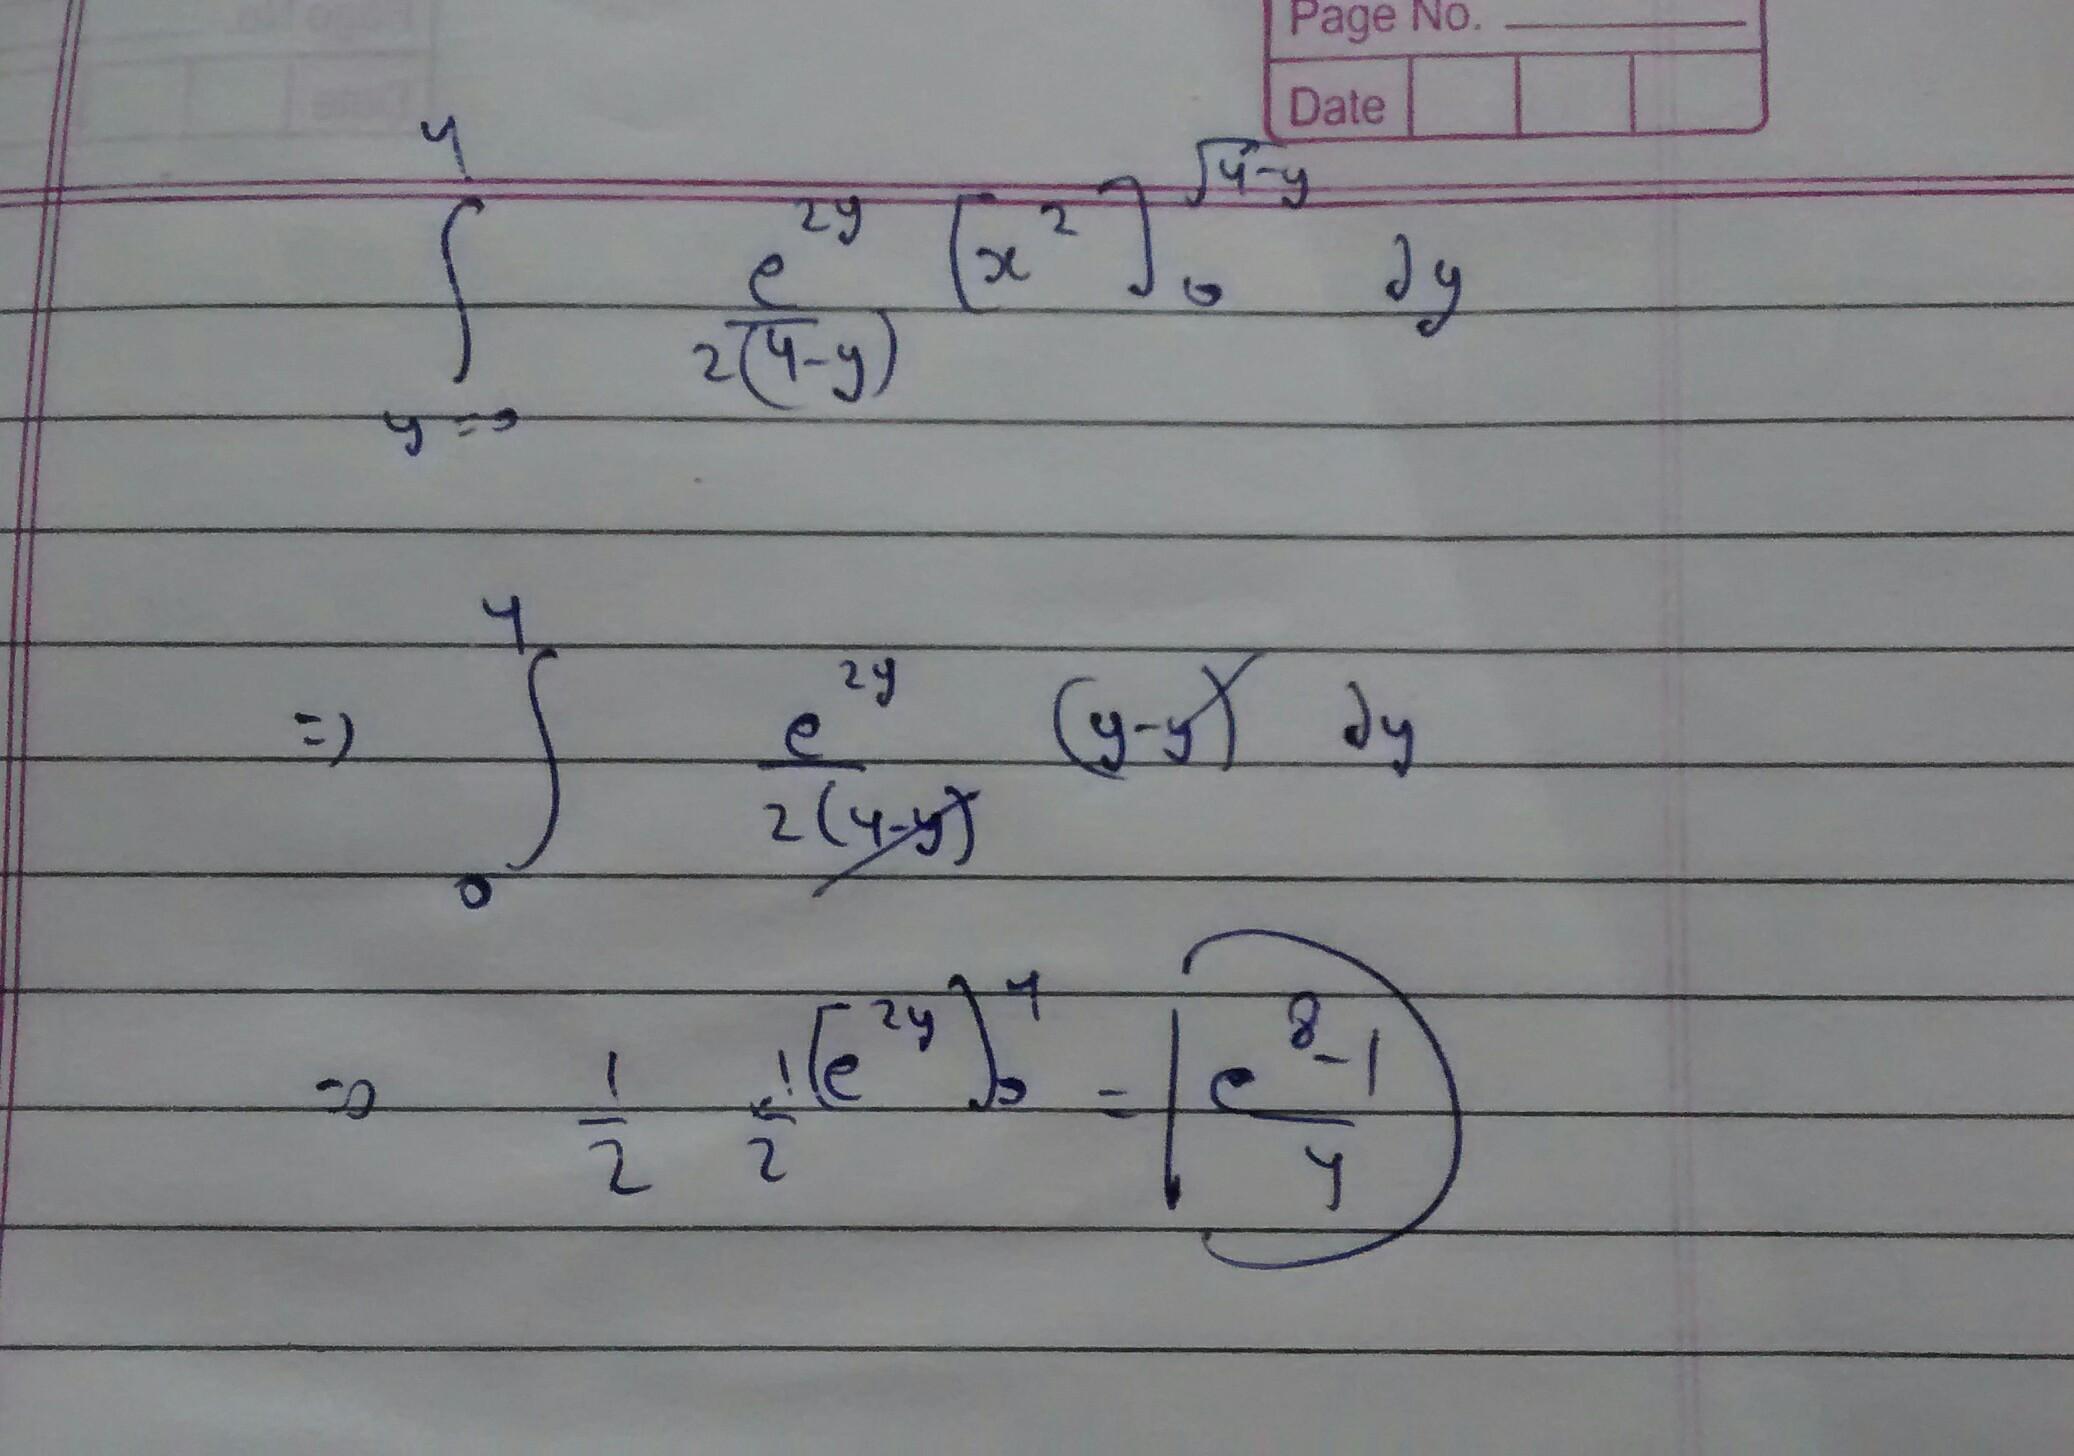 Page No.
Date
∫_{y=0}^{4} e^{2y}/2(4-y) [x^2]_0^{√4-y} dy
=> ∫_0^4 e^{2y}/2(4-y) (4-y) dy
=> 1/2 1/2 [e^{2y}]_0^4 = e^8-1/4